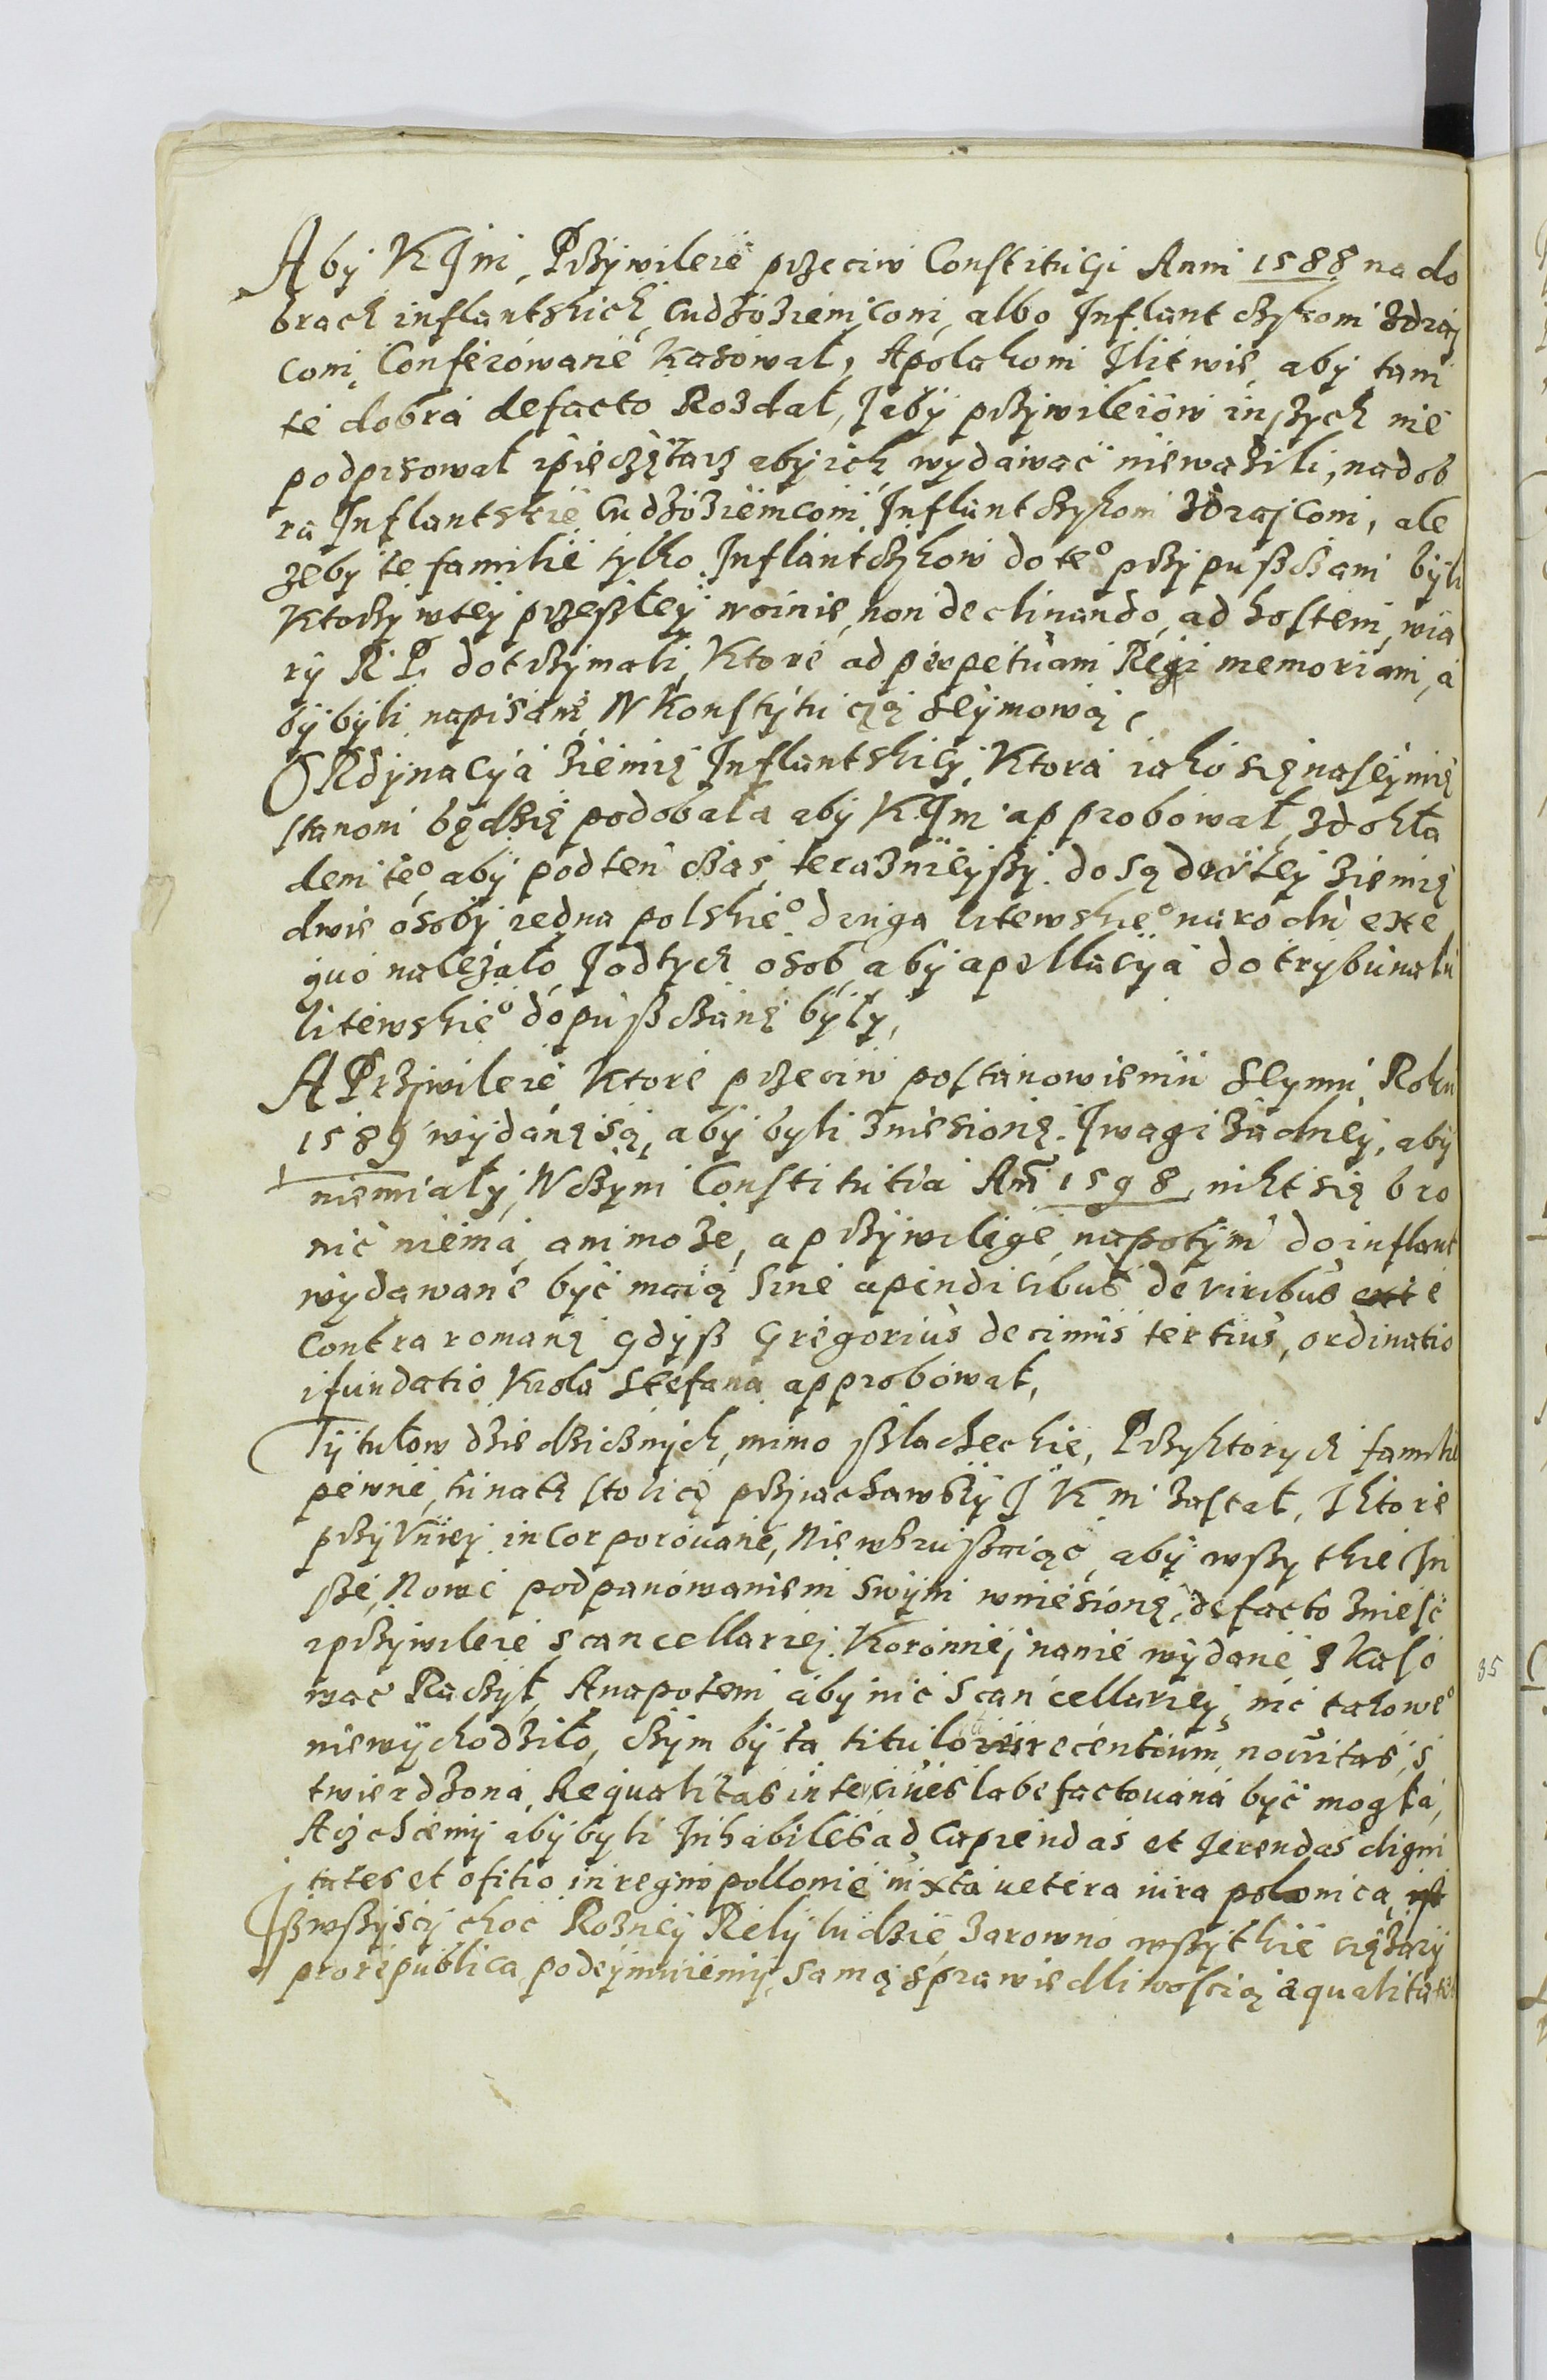 Aby K Jm, Przywileie przeciw Constitucji Anni 1588 na do
brach inflantskich, Cudzoziemcom, albo Inflantczykom zdraj
com, Conferowanie kasował, A polakom Ilitwie, aby tam
te dobra defacto Rozdał, Jaby przywileiow inszych nie
podpisował ipieczętarz aby ich wydawać nieważili, nadob
ra Inflantskie Cudzoziemcom Inflantczykom zdrajcom, ale
żeby te familie tylko Inflantczykow do te° przypuszczani byli
Ktorzy wtey przeszłey woinie, non declinando, ad hostem, wia
ry R P. dotrzymali, Ktore ad perpetuam Regi memoriam, a
by byli napisane W Konstytucią Seymową,
ORdynacya Ziemię Inflantskiey, Ktora iako się naseymie
stanom będzię podobała aby K Jm approbował, zdokła
dem te°, aby podten czas terazniejszy do sądow tey ziemię
dwie osoby iedna polskie° druga litewskie° narodu exe
quo należało, Jodtych osob, aby apellacya do trybunalu
litewskie° dopuszczane były,
A Przywileie, Ktore przeciw postanowieniu Seymu, Roku
1589 wydanę są, aby byli zniesionę. Jwagi żadney, aby
niemiały, W czym Constitutia Anī 1598, nikt się bro
nić niema, ani może, a przywilege, napotym do inflant
wydawane być maią sine apendicibus de viribus e
contra romanę gdysz Gregorius decimus tertius, ordinatio
ifundatio Krola Stefana approbował,
Tytułow dziedzicznych, mimo szlacheckie, Przyktorych familie
pewne, tu natę stolicę przyiachawszy J K m zastał, Iktore
przy Vniey incorporouane, Nie wzruszaiąc, aby wszytkie In
sze, Nowe podpanowaniem swym wniesionę, defacto znieść
iprzywileie scancellariej Koronnej nanie wydane skaso
wac Raczył, Anapotem aby nic Scancellariey, nic takowe°
niewychodziło, czym by ta titulo recentium nouitas, s
twierdzona, Aequalitas labefactouana być mogła,
Aiz chcemy aby byli Inhabiles ad Capiendas et gerendas digni
tates et ofitio in regno pollonie iuxta uetera iura polonica,
Iż wszyscy choc Rożney Rely ludzie, zarowno wszytkie ciężary
pro republica podeymuiemy, samą sprawiedliwością aqualitate
85